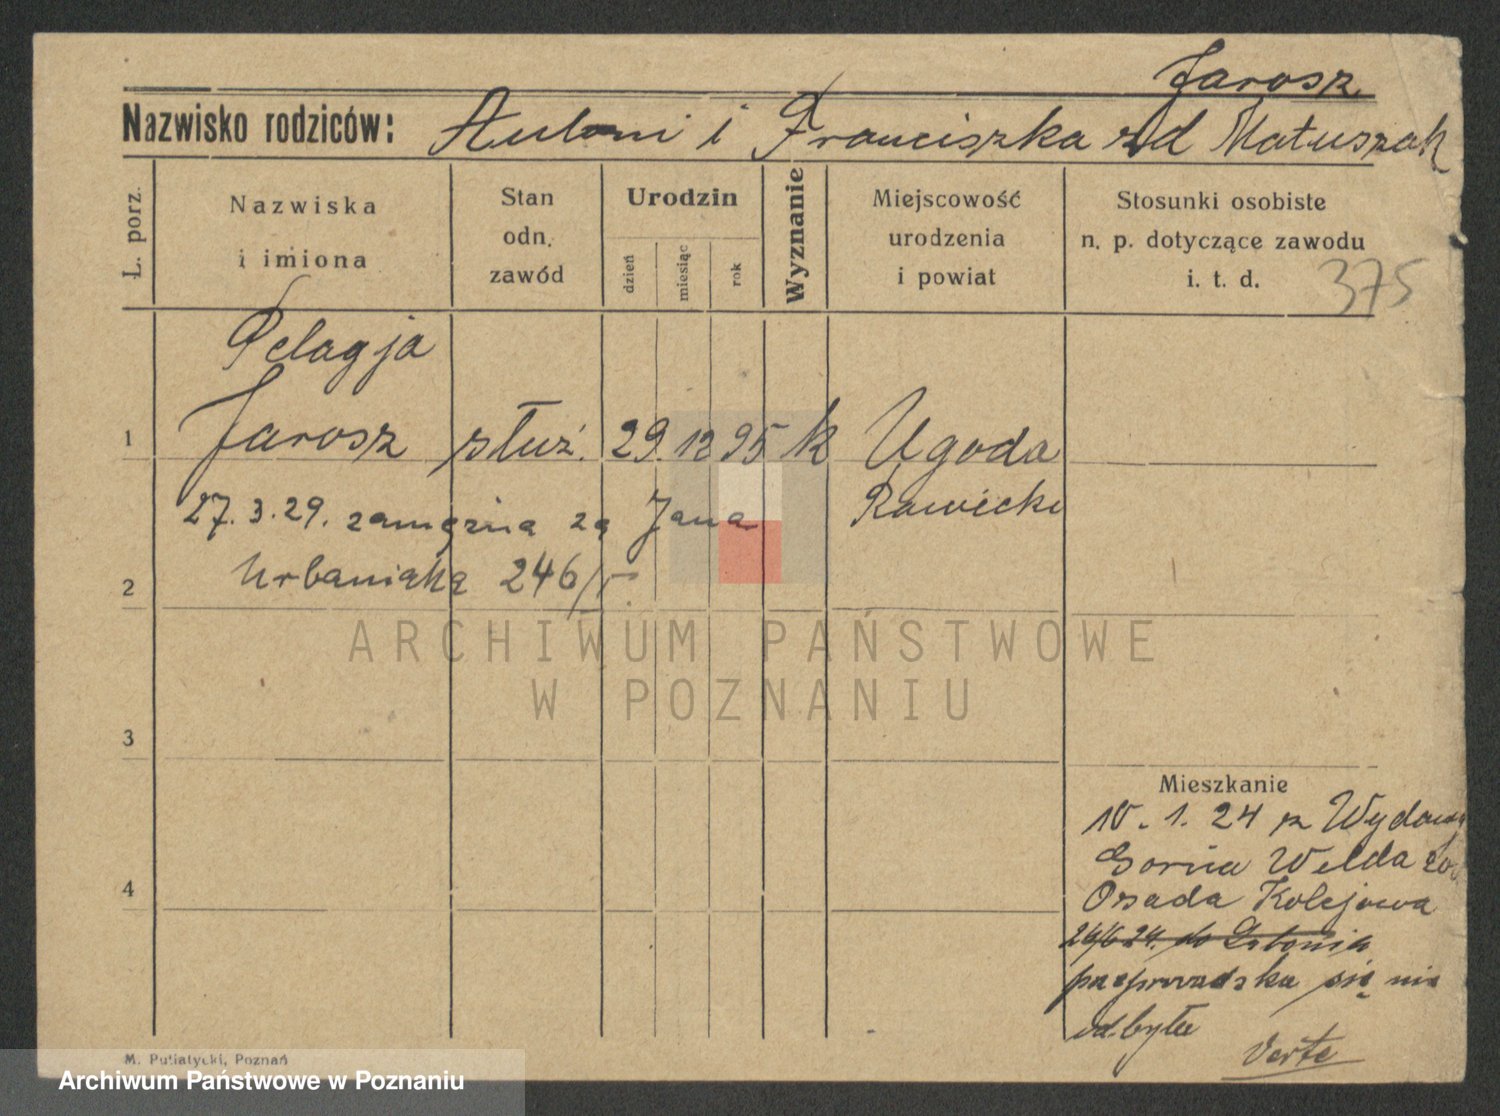 Jarosz
Nazwisko rodziców: Antoni i Franciszka zd Matuszak
Ł. porz.
Nazwiska
i imiona
Stan
odn.
zawód
Urodzin
dzień
miesiąc
rok
Wyznanie
Miejscowość
urodzenia
i powiat
Stosunki osobiste
n. p. dotyczące zawodu
i. t. d.
375
Pelagja
1 Jarosz służ. 29. 12 95 k Ugoda
Rawicki
27. 3. 29. zamężna za Jana
2 Urbaniaka 246/
ARCHIWUM PAŃSTWOWE
W POZNANIU
3
Mieszkanie
10. 1. 24 z
Górna Wilda
4
Osada Kolejowa
26/6 24. do
przeprowadzka się nie
odbyła
Verte
M. Putiatycki, Poznań
Archiwum Państwowe w Poznaniu